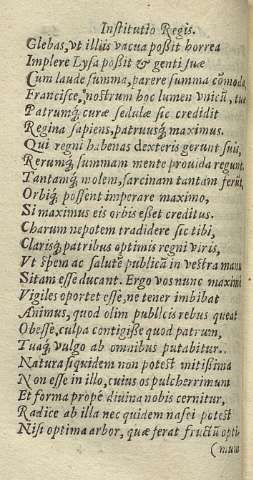 Institutio Regis.
Glebas, vt illius vacua poßit horrea
Implere Lysa poßit & genti suæ
Cum laude summa, parere summa cōmoda
Francisce, nostrum hoc lumen vnicū, tuæ
Patrumq; curæ sedulæ sic credidit
Regina sapiens, patruusq; maximus.
Qui regni habenas dexteris gerunt suis,
Rerumq; summam mente prouida regunt.
Tantamq; molem, sarcinam tantam ferūt,
Orbiq; possent imperare maximo,
Si maximus eis orbis esset creditus.
Charum nepotem tradidere sic tibi,
Clarisq; patribus optimis regni viris,
Vt spem ac salutē publicā in vestra manu
Sitam esse ducant. Ergo vos nunc maximè
Vigiles oportet esse, ne tener imbibat
Animus, quod olim publicis rebus queat
Obesse, culpa contigisse quod patrum,
Tuaq; vulgo ab omnibus putabitur.
Natura siquidem non potest mitissima
Non esse in illo, cuius os pulcherrimum
Et forma propè diuina nobis cernitur,
Radice ab illa nec quidem nasci potest
Nisi optima arbor, quæ ferat fructū opti-
(mum